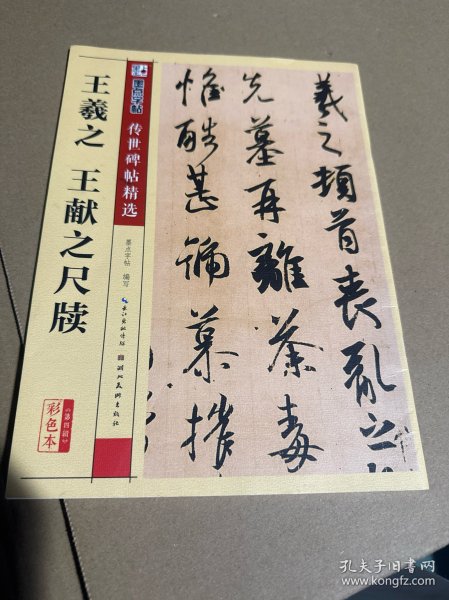 墨点字帖
传世碑帖精选
王羲之 王献之尺牍
墨点字帖 编写
长江出版传媒
湖北美术出版社
《第四辑》
彩色本
羲之顿首丧乱之极
先墓再离荼毒
惟酷甚痛慕摧
孔夫子旧书网
www.kongfz.com